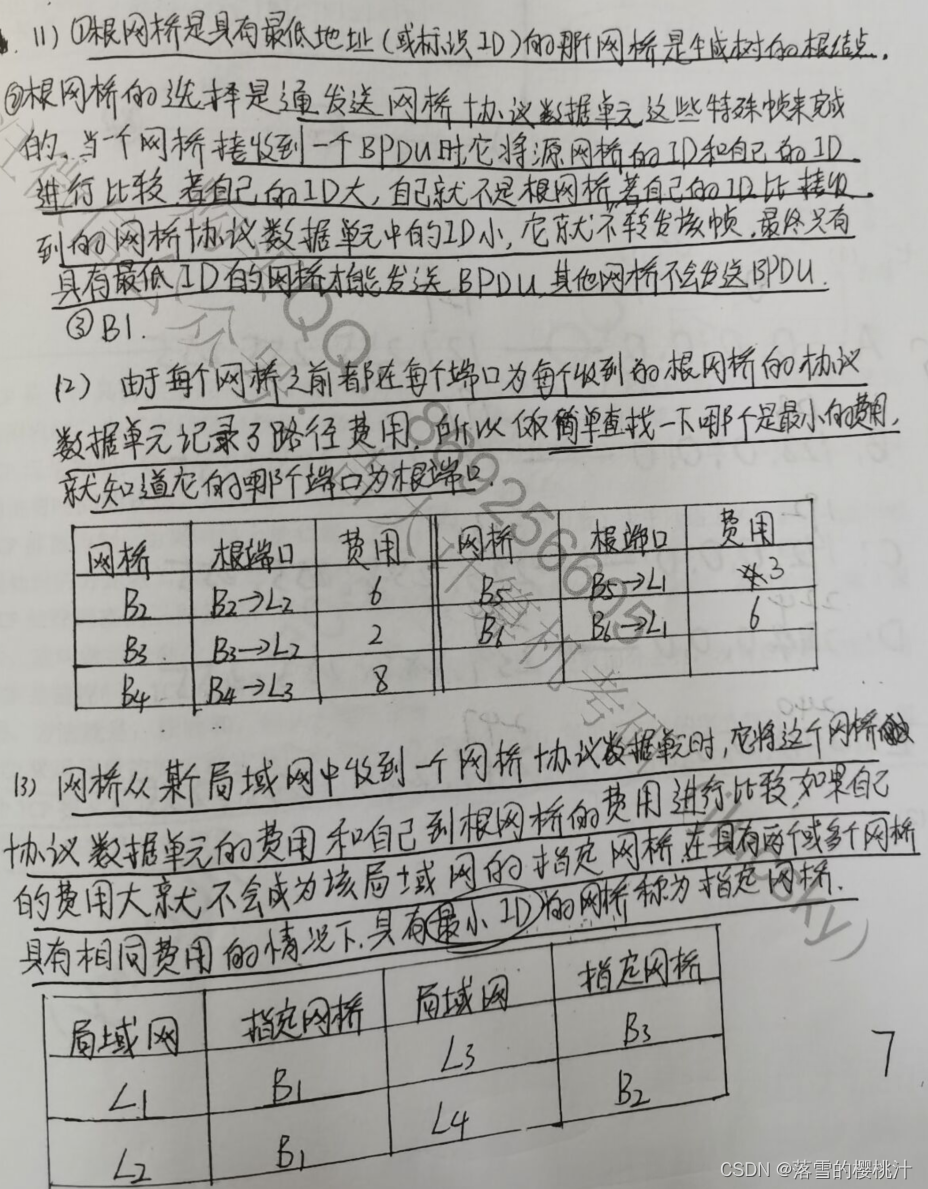 11) ①根网桥是具有最低地址(或标识ID)的那个网桥是生成树的根结点.
②根网桥的选择是通发送网桥协议数据单元这些特殊帧来完成
的,当一个网桥接收到一个BPDU时,它将源网桥的ID和自己的ID
进行比较,若自己的ID大,自己就不是根网桥,若自己的ID比接收
到的网桥协议数据单元中的ID小,它就不转发该帧,最终只有
具有最低ID的网桥才能发送BPDU,其他网桥不会发送BPDU.
③B1.
(2) 由于每个网桥之前都在每个端口为每个收到的根网桥的协议
数据单元记录了路径费用,所以仅简单查找一下哪个是最小的费用,
就知道它的哪个端口为根端口.
网桥 根端口 费用 网桥 根端口 费用
B2 B2→L2 6 B5 B5→L1 3
B3 B3→L2 2 B6 B6→L1 6
B4 B4→L3 8
13) 网桥从某局域网中收到一个网桥协议数据单元时,它将这个网桥
协议数据单元的费用和自己到根网桥的费用进行比较,如果自己
的费用大就不会成为该局域网的指定网桥,在具有两个或多个网桥
具有相同费用的情况下,具有最小ID的网桥称为指定网桥.
局域网 指定网桥 局域网 指定网桥
L1 B1 L3 B3
L2 B1 L4 B2
7
QQ
869256605
CSDN @落雪的樱桃汁